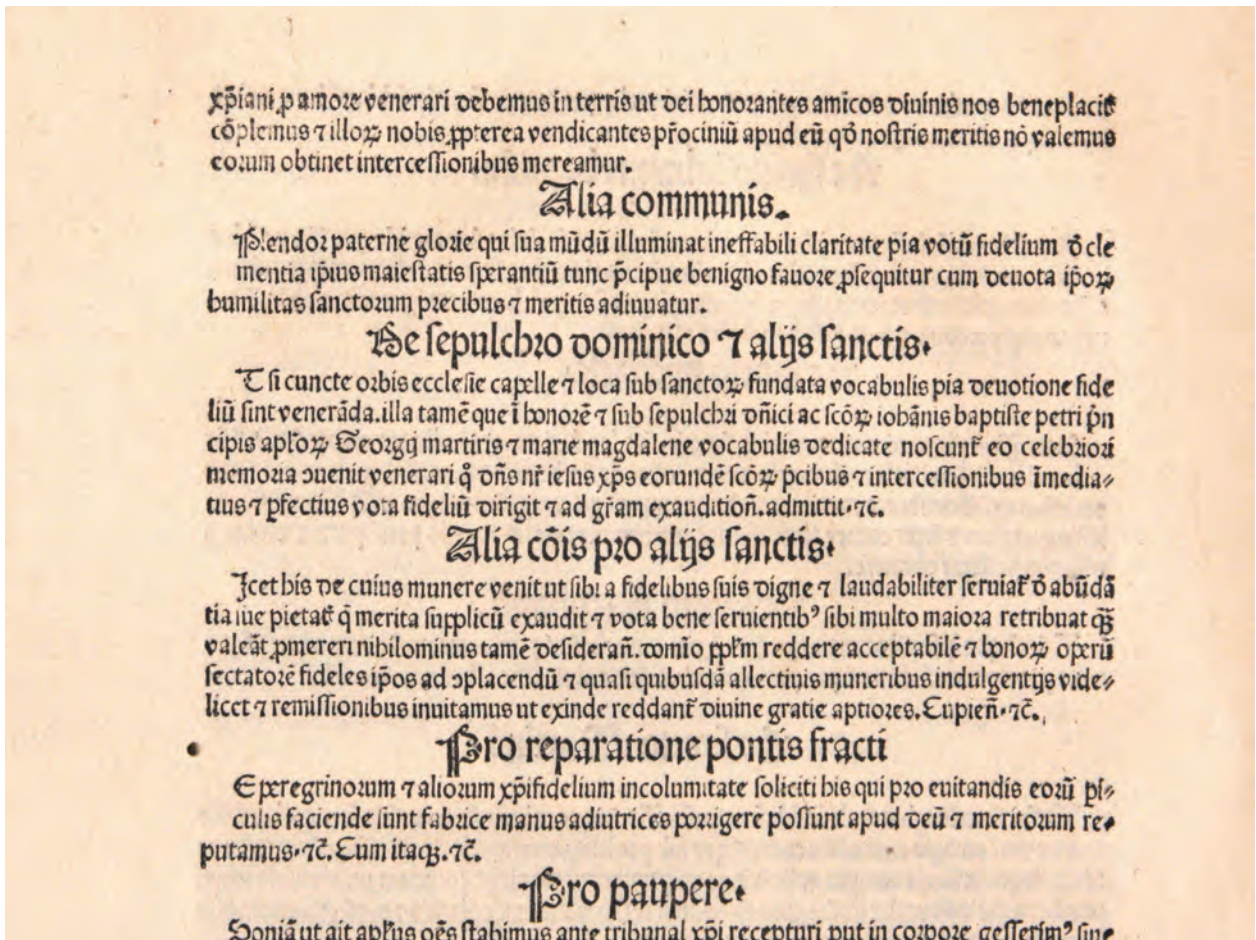 xp̄iani ꝓ amore venerari debemus in terris ut dei honorantes amicos diuinis nos beneplacit᷒
cōplemus ⁊ illoꝝ nobis ꝓpterea vendicantes p̄rociniū apud eū qd̄ nostris meritis nō valemus
eorum obtinet intercessionibus mereamur.
Alia communis.
Splendor paterne glorie qui sua mūdū illuminat ineffabili claritate pia votū fidelium d̄ cle
mentia ip̄ius maiestatis sperantiū tunc p̄cipue benigno fauore ꝓsequitur cum deuota ip̄oꝝ
humilitas sanctorum precibus ⁊ meritis adiuuatur.
De sepulchro dominico ⁊ alijs sanctis.
T si cuncte orbis ecclesie capelle ⁊ loca sub sanctoꝝ fundata vocabulis pia deuotione fide
liū sint venerāda. illa tamē que ī honorē ⁊ sub sepulchri dn̄ici ac scōꝝ iohānis baptiste petri p̄n
cipis apl̄oꝝ Georgij martiris ⁊ marie magdalene vocabulis dedicate noscunt᷒ eo celebriori
memoria ↄuenit venerari q̊ dn̄s nr̄ iesus xp̄s eorundē scōꝝ p̄cibus ⁊ intercessionibus īmedia⸗
tius ⁊ ꝑfectius vota fideliū dirigit ⁊ ad gr̄am exaudition̄. admittit. ⁊c̄.
Alia cōis pro alijs sanctis.
Icet his de cuius munere venit ut sibi a fidelibus suis digne ⁊ laudabiliter seruiat᷒ d̄ abūdā
tia sue pietat᷒ q̄ merita supplicū exaudit ⁊ vota bene seruientibꝰ sibi multo maiora retribuat qꝫ̄
valeāt ꝓmereri nihilominus tamē desideran̄. domīo ppl̄m reddere acceptabilē ⁊ bonoꝝ operū
sectatorē fideles ip̄os ad ↄplacendū ⁊ quasi quibusdā allectiuis muneribus indulgentijs vide⸗
licet ⁊ remissionibus inuitamus ut exinde reddant᷒ diuine gratie aptiores. Cupien̄. ⁊c̄.
Pro reparatione pontis fracti
E peregrinorum ⁊ aliorum xp̄ifidelium incolumitate soliciti his qui pro euitandis eorū ꝑi⸗
culis faciende sunt fabrice manus adiutrices porrigere possunt apud deū ⁊ meritorum re⸗
putamus. ⁊c̄. Cum itaqꝫ. ⁊c̄.
Pro paupere.
Qoniā ut ait apl̄us oēs stabimus ante tribunal xp̄i recepturi put in corpore gesserimꝰ siue